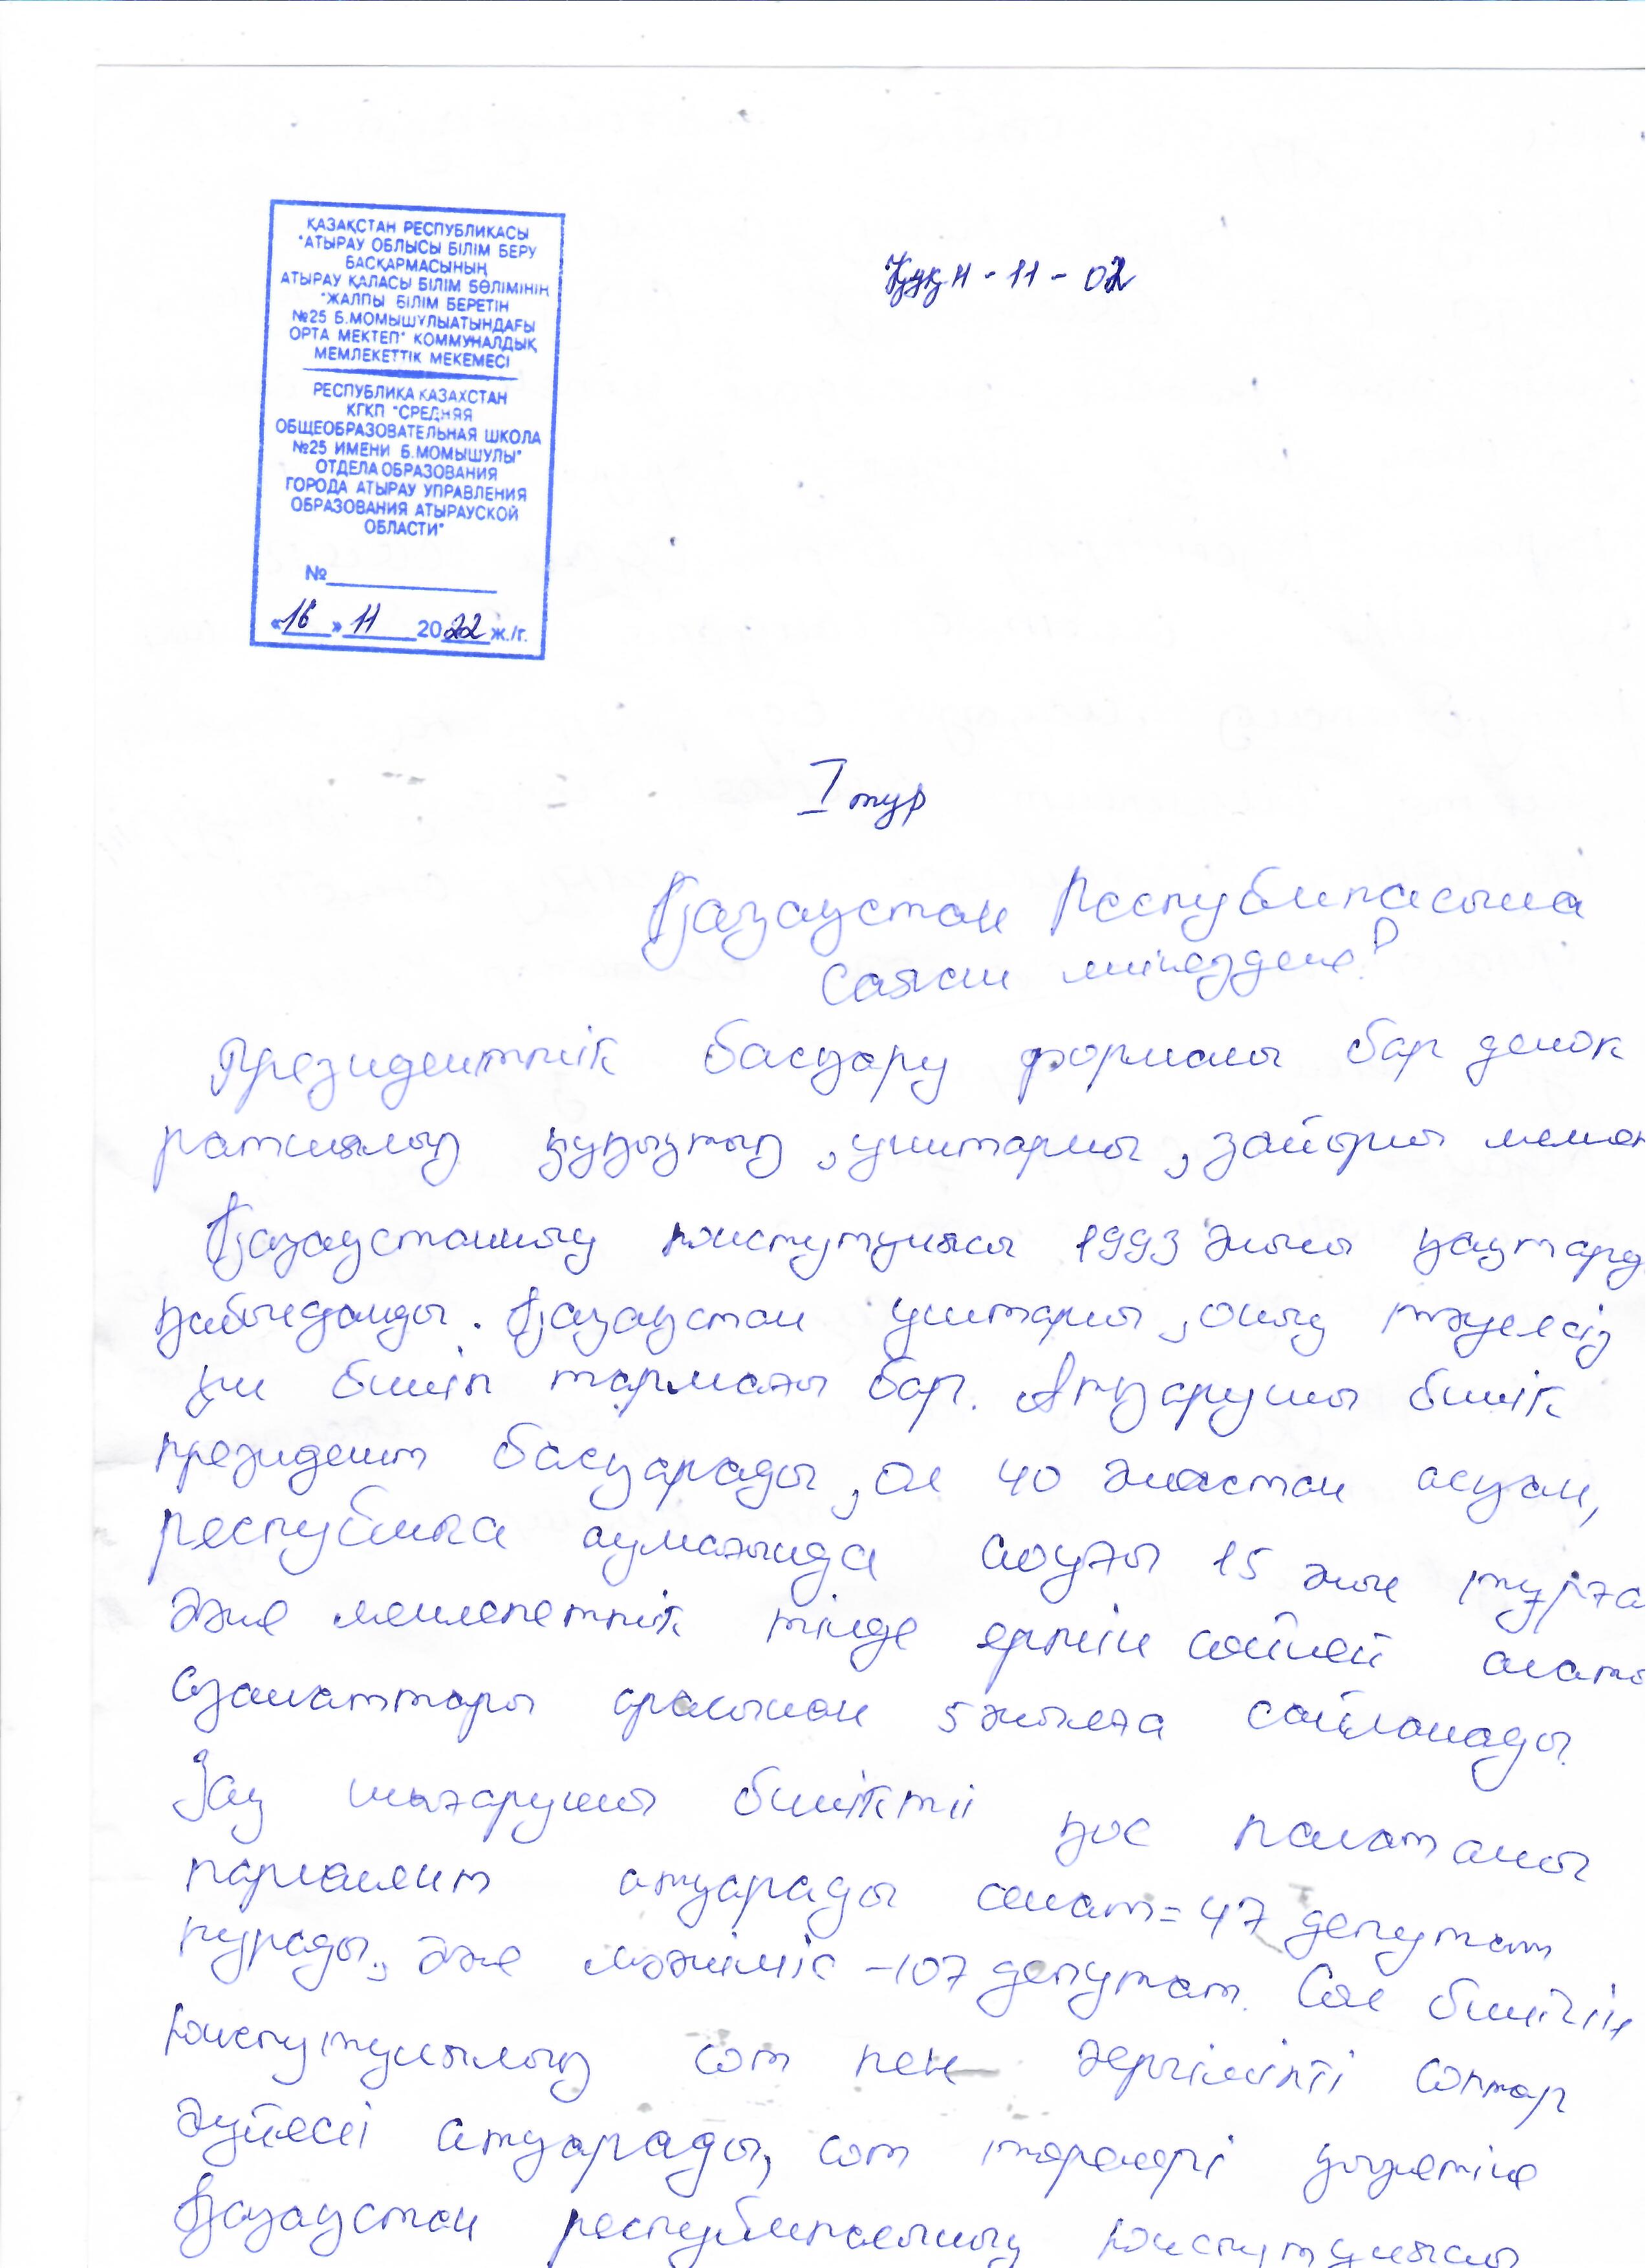 ҚАЗАҚСТАН РЕСПУБЛИКАСЫ
"АТЫРАУ ОБЛЫСЫ БІЛІМ БЕРУ
БАСҚАРМАСЫНЫҢ
АТЫРАУ ҚАЛАСЫ БІЛІМ БӨЛІМІНІҢ
"ЖАЛПЫ БІЛІМ БЕРЕТІН
№25 Б.МОМЫШҰЛЫАТЫНДАҒЫ
ОРТА МЕКТЕП" КОММУНАЛДЫҚ
МЕМЛЕКЕТТІК МЕКЕМЕСІ
РЕСПУБЛИКА КАЗАХСТАН
КГКП "СРЕДНЯЯ
ОБЩЕОБРАЗОВАТЕЛЬНАЯ ШКОЛА
№25 ИМЕНИ Б.МОМЫШУЛЫ"
ОТДЕЛА ОБРАЗОВАНИЯ
ГОРОДА АТЫРАУ УПРАВЛЕНИЯ
ОБРАЗОВАНИЯ АТЫРАУСКОЙ
ОБЛАСТИ"
№
«16» 11 2022 ж./г.
- 11 - 02
I тур
Қазақстан Республикасына
саяси мінездеме?
Президенттік басқару формалы бар демок
ратиялық құқықтық, унитарлы, зайырлы
Қазақстанның конституциясы 1993 жылы қаңтарда
қабылданды. Қазақстан унитарлы, оның тәуелсіз
үш билік тармағы бар. Атқарушы билік
президент басқарады, ол 40 жастан асқан,
республика аумағында соңғы 15 жыл тұрға
және мемлекеттік тілде еркін сөйлей алаты
азаматтары арасынан 5 жылға сайланады.
Заң шығарушы билікті қос палаталы
парламент атқарады сенат = 47 депутат
құрады., және мәжіліс - 107 депутат. Сот билігін
конституциялық сот пен жергілікті соттар
жүйесі атқарады, сот төрелері қызметіне
Қазақстан республикасының конституциясы